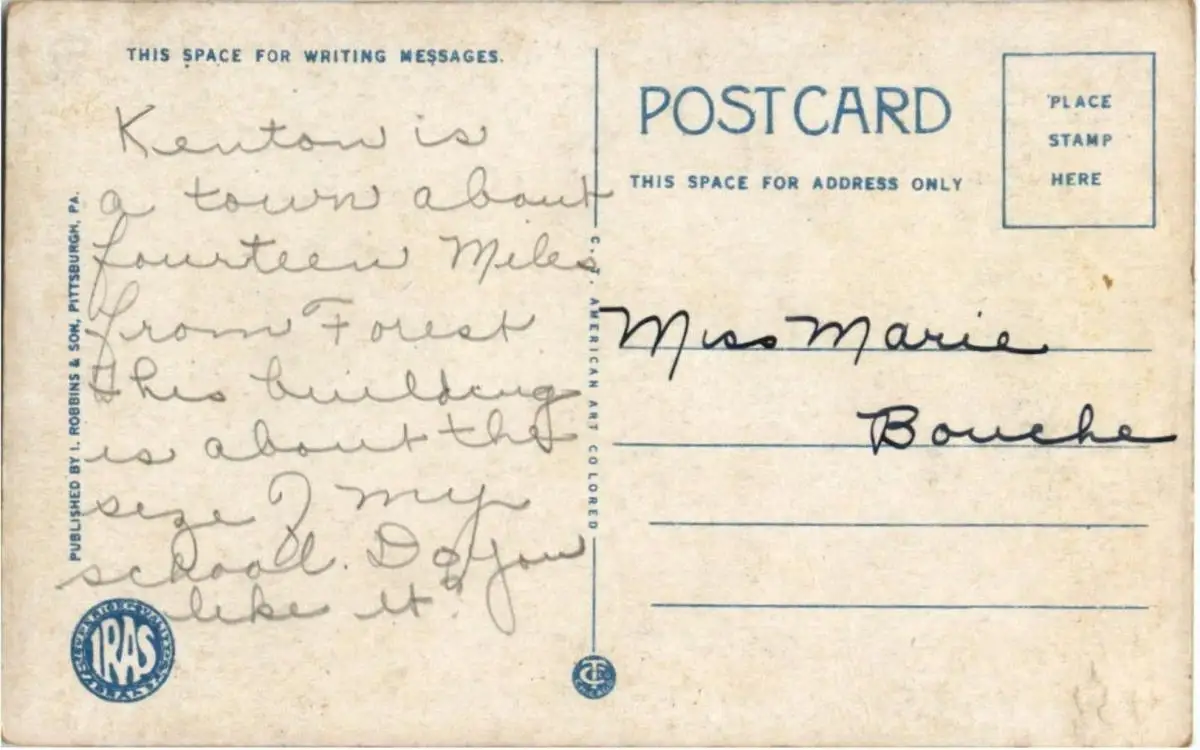 THIS SPACE FOR WRITING MESSAGES.
Kenton is
a town about
fourteen Miles
from Forest
this building
is about the
size of my
school. Do you
like it?
PUBLISHED BY I. ROBBINS & SON, PITTSBURGH, PA.
IRAS
C. T. AMERICAN ART COLORED
POST CARD
THIS SPACE FOR ADDRESS ONLY
PLACE
STAMP
HERE
Miss Marie
Bouche